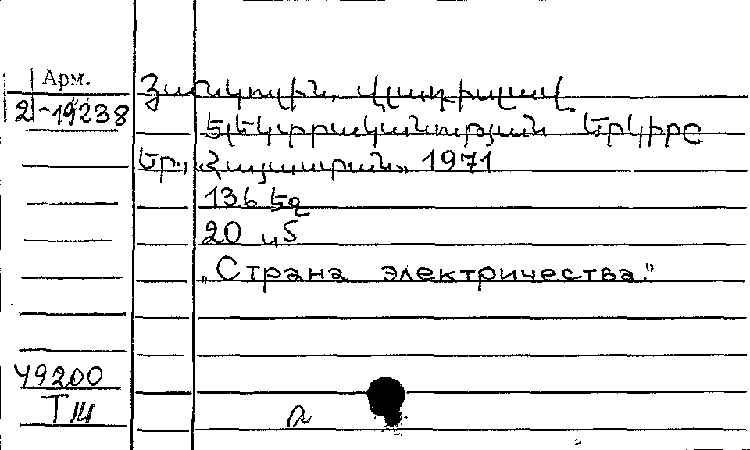 Арм.
2-19238
Յանկուլին, Վլադիսլավ
Էլեկտրականության երկիրը
Եր., «Հայաստան» 1971
136 էջ
20
„Страна электричества"
49200